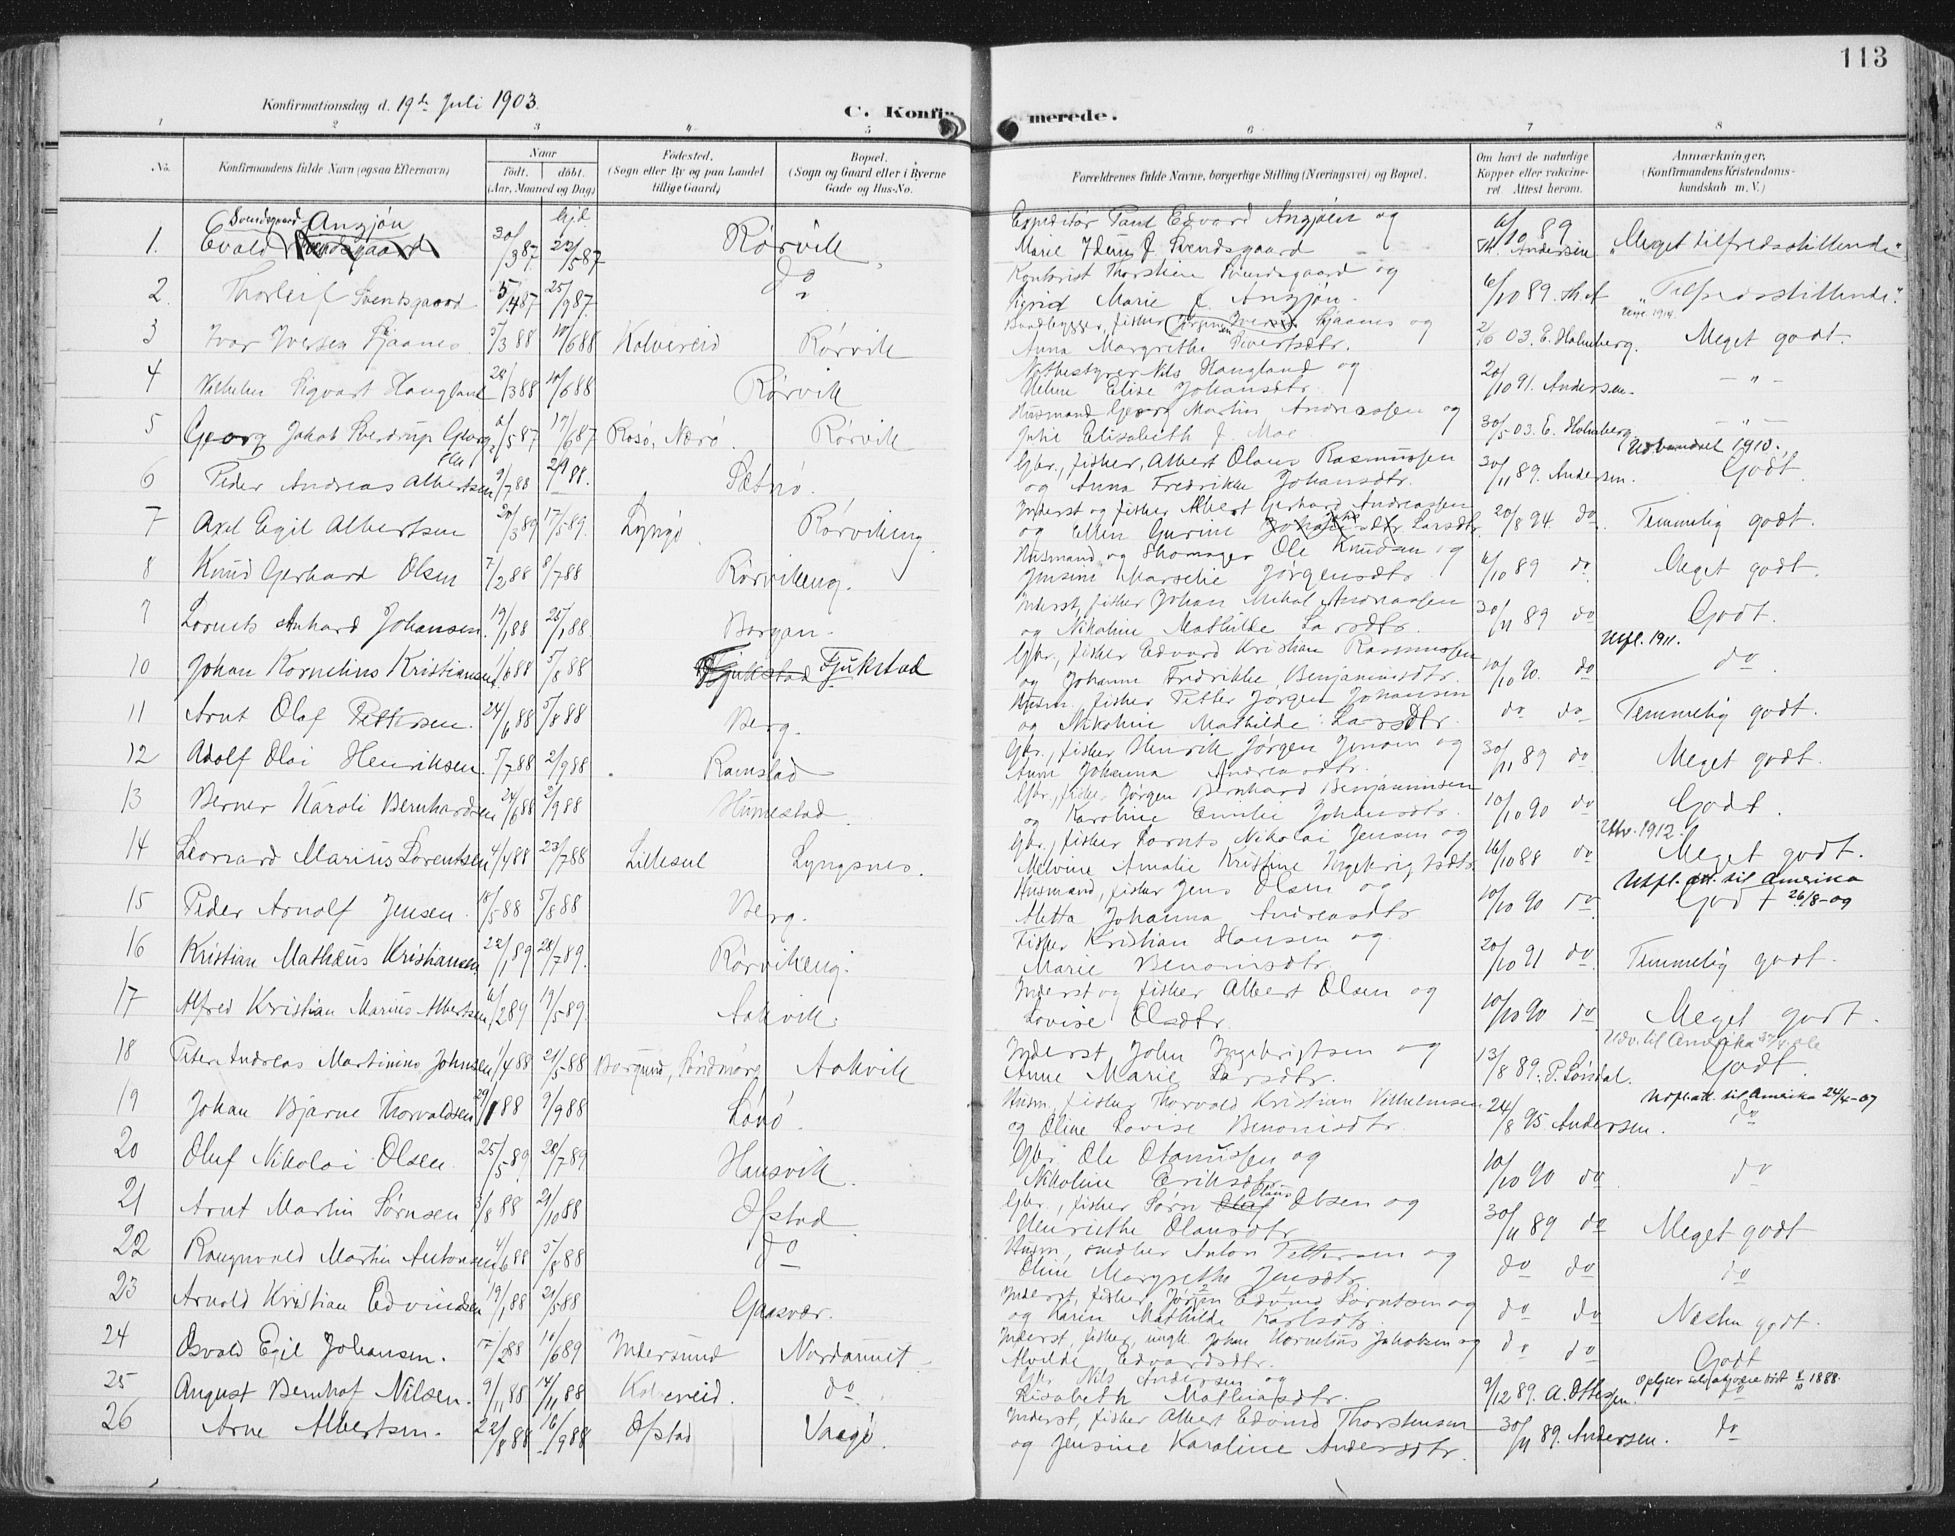 113
Konfirmationsdag d. 19de Juli 1903.
C. Konfir merede.
1 2 3 4 5 6 7 8
No. Konfirmandens fulde Navn (ogsaa Efternavn)
Naar
født. døbt.
(Aar, Maaned og Dag)
Fødested.
(Sogn eller By og paa Landet
tillige Gaard)
Bopæl.
(Sogn og Gaard eller i Byerne
Gade og Hus-No.
Forældrenes fulde Navne, borgerlige Stilling (Næringsvei) og Bopæl.
Om havt de naturlige
Kopper eller vakcine-
ret Attest herom.
Anmærkninger.
(Konfirmandens Kristendoms-
kundskab m. V.)
Svendsgaard Angjøn
1. Evald Svendsgaard 30/3 87 Rørvik
Expeditør Paul Edvard Angjøen og
Marie J Svendsgaard 6/10 89 Th. Andersen "Meget tilfredsstillende"
2. Thorleif Svendsgaard 5/4 87 25/9 87 do
Kontorist Thorstein Svendsgaard og
Sigrid Marie J. Angjøn 6/10 89 Th. A "Tilfredsstillende".
3 Ivar Iversen 5/3 88 10/6 88 Kolvereid Rørvik
Baadbygger, fisker og
Anna Margrethe Sivertsdtr. 2/6 03. E. Holmberg. Meget godt.
4 Vilhelm Sigvart Haugland 28/3 88 10/6 88 Rørvik
Notbestyrer Nils Haugland og
Helene Elise Johansdtr. 20/10 91. Andersen. — " —
5 Georg Jakob Sverdrup Georgs. 2/5 87 17/6 87 Rosø, Nærø. Rørvik
Husmand Georg Martin Andreassen og
Julie Elisabeth J. Moe 30/5 03. E. Holmberg — " —
Udvandret 1910.
6 Peder Andreas Albertsen 9/7 88 2/9 88. Sætnø.
Gbr., fisker, Albert Olaus Rasmussen
og Anna Fredrikke Johansdtr. 30/11 89. Andersen. Godt.
7 Axel Egil Albertsen 20/3 89 17/5 89. Lyngø. Rørvikeng
Inderst og fisker Albert Gerhard Andreassen
og Ellen Gurine Larsdtr. 20/8 94 do. Temmelig godt.
8 Knud Gerhard Olsen 7/2 88 8/7 88 Rørvikeng.
Husmand og Skomager Ole Knudsen og
Jensine Marselie Jørgensdtr. 6/10 89 do Meget godt.
9 Lornts Anhard Johansen. 19/1 88 25/1 88. Borgan.
Inderst, fisker Johan Mikal Andreassen
og Nikoline Mathilde Larsdtr. 30/11 89 do Godt.
Utfl. 1911.
10 Johan Kornelius Kristiansen. 1/6 88 5/8 88 Fjukstad Fjukstad
Gbr., fisker Edvard Kristian Rasmussen
og Johanne Fredrikke Benjaminsdtr. 10/10 90. do do.
11 Arnt Olaf Pettersen. 24/6 88 5/8 88 Berg.
Husm., fisker Petter Jørgen Johansen
og Nikoline Mathilde Larsdtr. do do Temmelig godt.
12 Adolf Olai Henriksen. 5/7 88 2/9 88 Ramstad
Gbr., fisker Henrik Jørgen Jensen og
Anne Johanna Andreasdtr. 30/11 89 do Meget godt.
13 Berner Karoli Bernhardsen 24/6 88 2/9 88 Humestad.
Gbr., fisker Jørgen Bernhard Benjaminsen
og Karoline Emilie Johansdtr. 10/10 90 do Godt.
Utv. 1912.
14 Leonard Marius Lorentsen 4/4 88 23/7 88 Lillesul Lyngsnes.
Gbr., fisker Lornts Nikolai Jensen og
Melvine Amalie Kristine Ingebrigtsdtr. 16/10 88 do Meget godt.
Utfl. att. til Amerika 26/8-09
15 Peder Arnolf Jensen. 18/5 88 5/8 88 Berg.
Husmand, fisker Jens Olsen og
Metta Johanna Andreasdtr 10/10 90 do Godt
16 Kristian Mathæus Kristiansen 22/1 89 28/7 89. Rørvikeng.
Fisker Kristian Hansen og
Marie Benonisdtr. 20/10 91 do Temmelig godt.
17 Alfred Kristian Marius Albertsen 6/2 89 19/5 89. Aakvik.
Inderst og fisker Albert Olsen og
Lovise Olsdtr. 10/10 90 do Meget godt.
Udv. til Amerika
18 Peter Andreas Martinius Johnsen 1/4 88 21/5 88 Borgund, Søndmøre Aakvik
Inderst John Ingebrigtsen og
Anne Marie Larsdtr. 13/8 89. P. Løvdal. Godt.
Utfl. att. til Amerika 24/4-07
19 Johan Bjarne Thorvaldsen 29/1 88 9/9 88 Lønø.
Husm., fisker Thorvald Kristian Vilhelmsen
og Oline Lovise Benonisdtr. 24/8 95 Andersen. do
20 Oluf Nikolai Olsen 25/5 89 28/7 89 Hansvik
Gbr. Ole Otomussen og
Nikoline Eriksdtr. 10/10 90 do do
21 Arnt Martin Sørnsen 3/8 88 21/10 88 Ofstad.
Gbr., fisker Sørn Olaf Olaus Olsen og
Henriethe Olausdtr. 30/11 89 do Meget godt
22 Rangnvald Martin Antonsen 4/6 88 5/8 88 do
Husm., snedker Anton Pettersen og
Oline Margrethe Jensdtr. do do do
23 Arnold Kristian Edvindsen 19/1 88 21/5 88 Gaasvær.
Inderst, fisker Jørgen Edvind Lorntsen og
og Karen Mathilde Karlsdtr. do do Næsten godt.
24 Osvald Egil Johansen. 17/2 88 10/6 89 Indersund Nordaunet
Inderst, fisker, ungk. Johan Kornelius Jakobsen og
Alvilde Edvardsdtr. do do Godt
25 August Bernhof Nilsen. 9/11 88 14/11 88 Kolvereid. do
Gbr. Nils Andersen og
Elisabeth Mathiasdtr. 9/12 89. A. Ottesen. Oplyser selv at være født 8/10 1888.
do
26 Arne Albertsen. 22/8 88 16/9 88 Ofstad Vaagø.
Inderst, fisker Albert Edvind Thorstensen
og Jensine Karoline Andersdtr. 30/11 89. Andersen. do